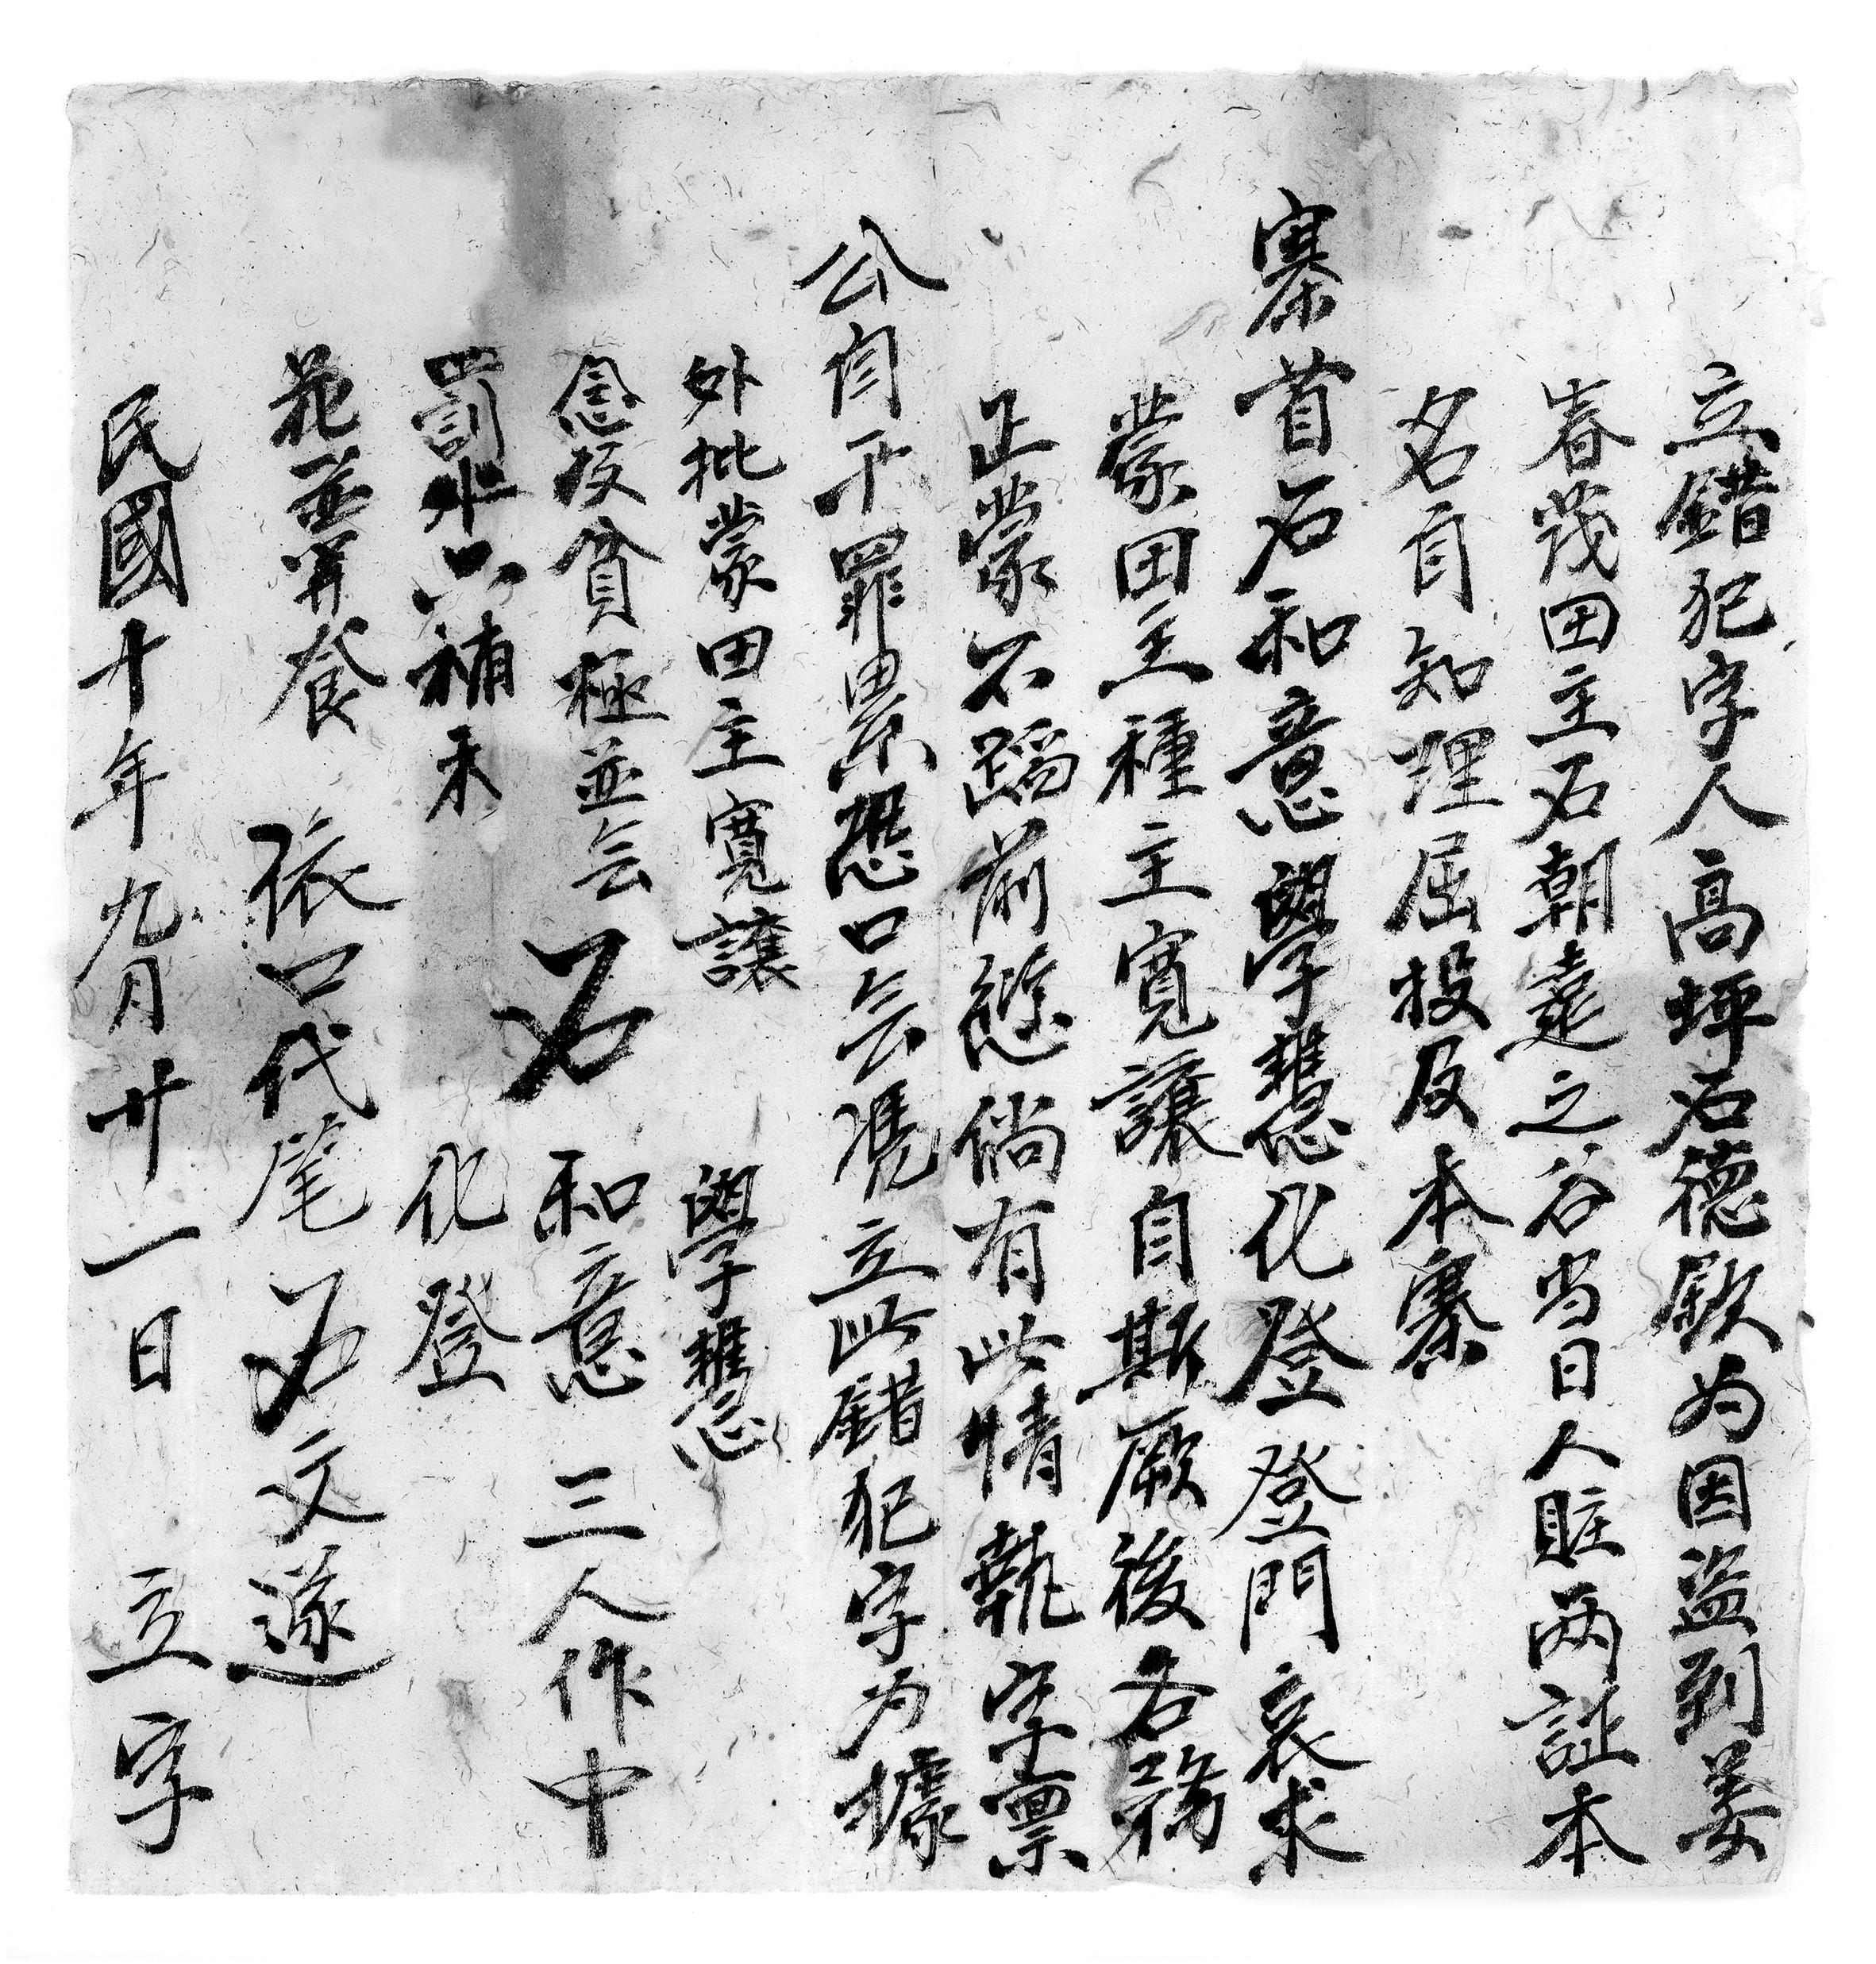 立錯犯字人高坪石德欽为因盜到姜
春茂田主石朝遠之谷当日人賍两証本
名自知理屈投及本寨
寨首石和意 學慧 化登登門哀求
蒙田主種主寬讓自斯厥後各務
正業不蹈前愆倘有此情執字禀
公自干罪累恐口无凴立此錯犯字为據
外批蒙田主寬讓 學慧
念及貧極並无 石 和意 三人作中
罰六補禾 化登
並 依口代筆石文遂
民國十年九月廿一日 立字